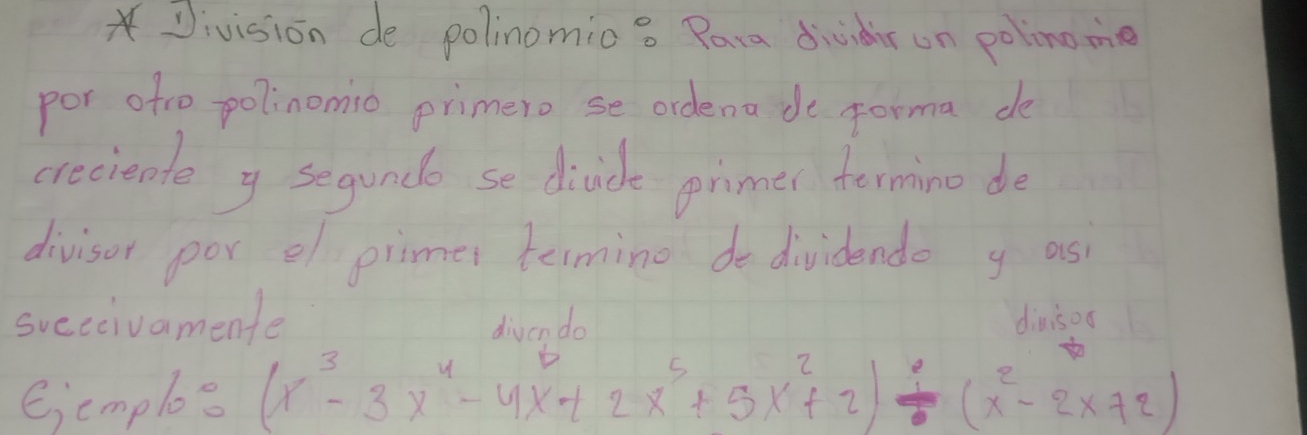 * División de polinomio: Para dividir un polinomio
por otro polinomio primero se ordena de forma de
creciente y segundo se divide primer termino de
divisor por el primer termino de dividendo y asi
succcivamente
divendo divisor
Ejemplo: (x³ - 3x⁴ - 4x + 2x⁵ + 5x² + 2) ÷ (x² - 2x + 2)